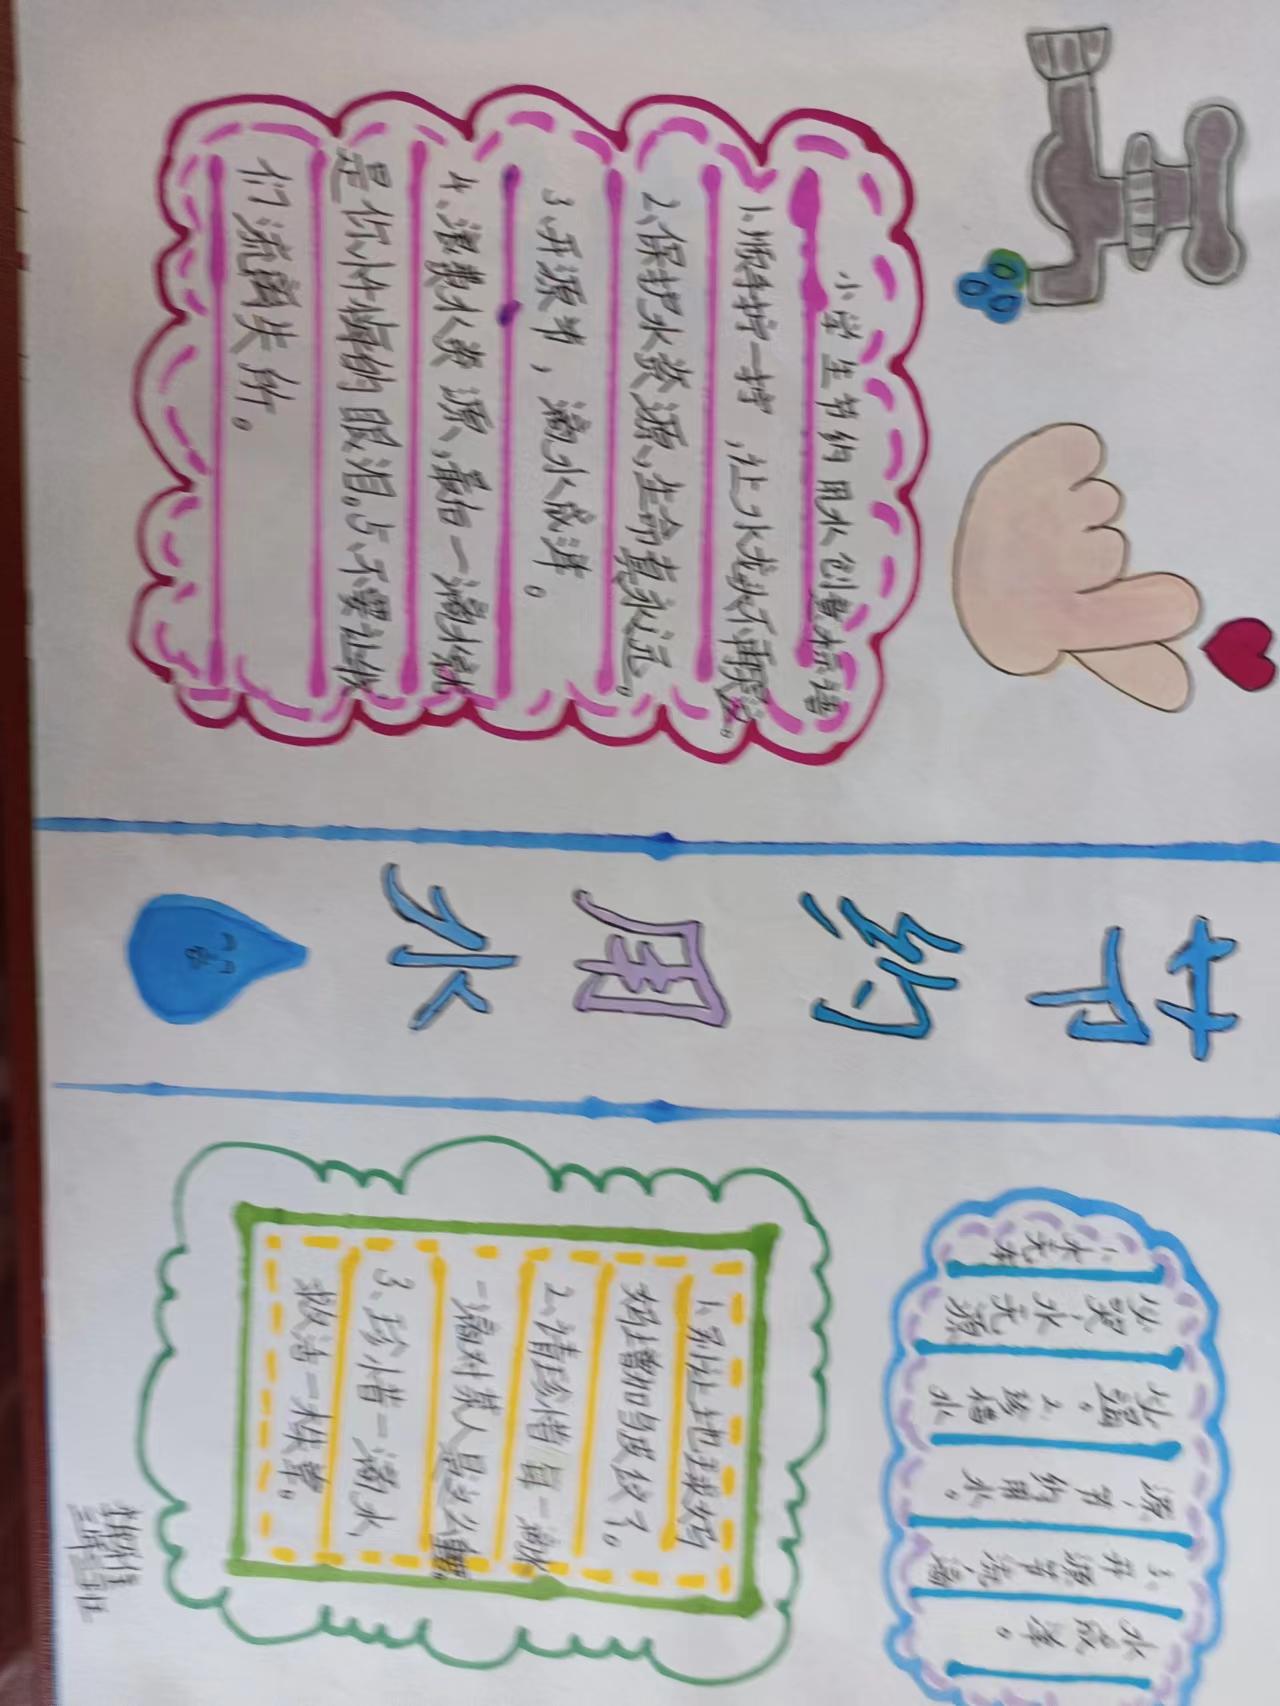 小学生节约用水创意标语
1.顺手拧一拧,让水龙头不再哭泣。
2.保护水资源,生命真永远。
3.开源节,滴水成洋。
4.浪费水资源,最怕一滴水
是你外婆的眼泪。5.不要让
们流离失所。
节约用水
1.水无
少哭,水无须
少溢。2.珍惜水
源,节约用水。
3.开源节流滴
水成洋。
1.别让地球妈
妈增加皱纹了。
2.请珍惜每一滴水
一滴对某人是
3.珍小惜一滴水
救活一株草。
三年三班